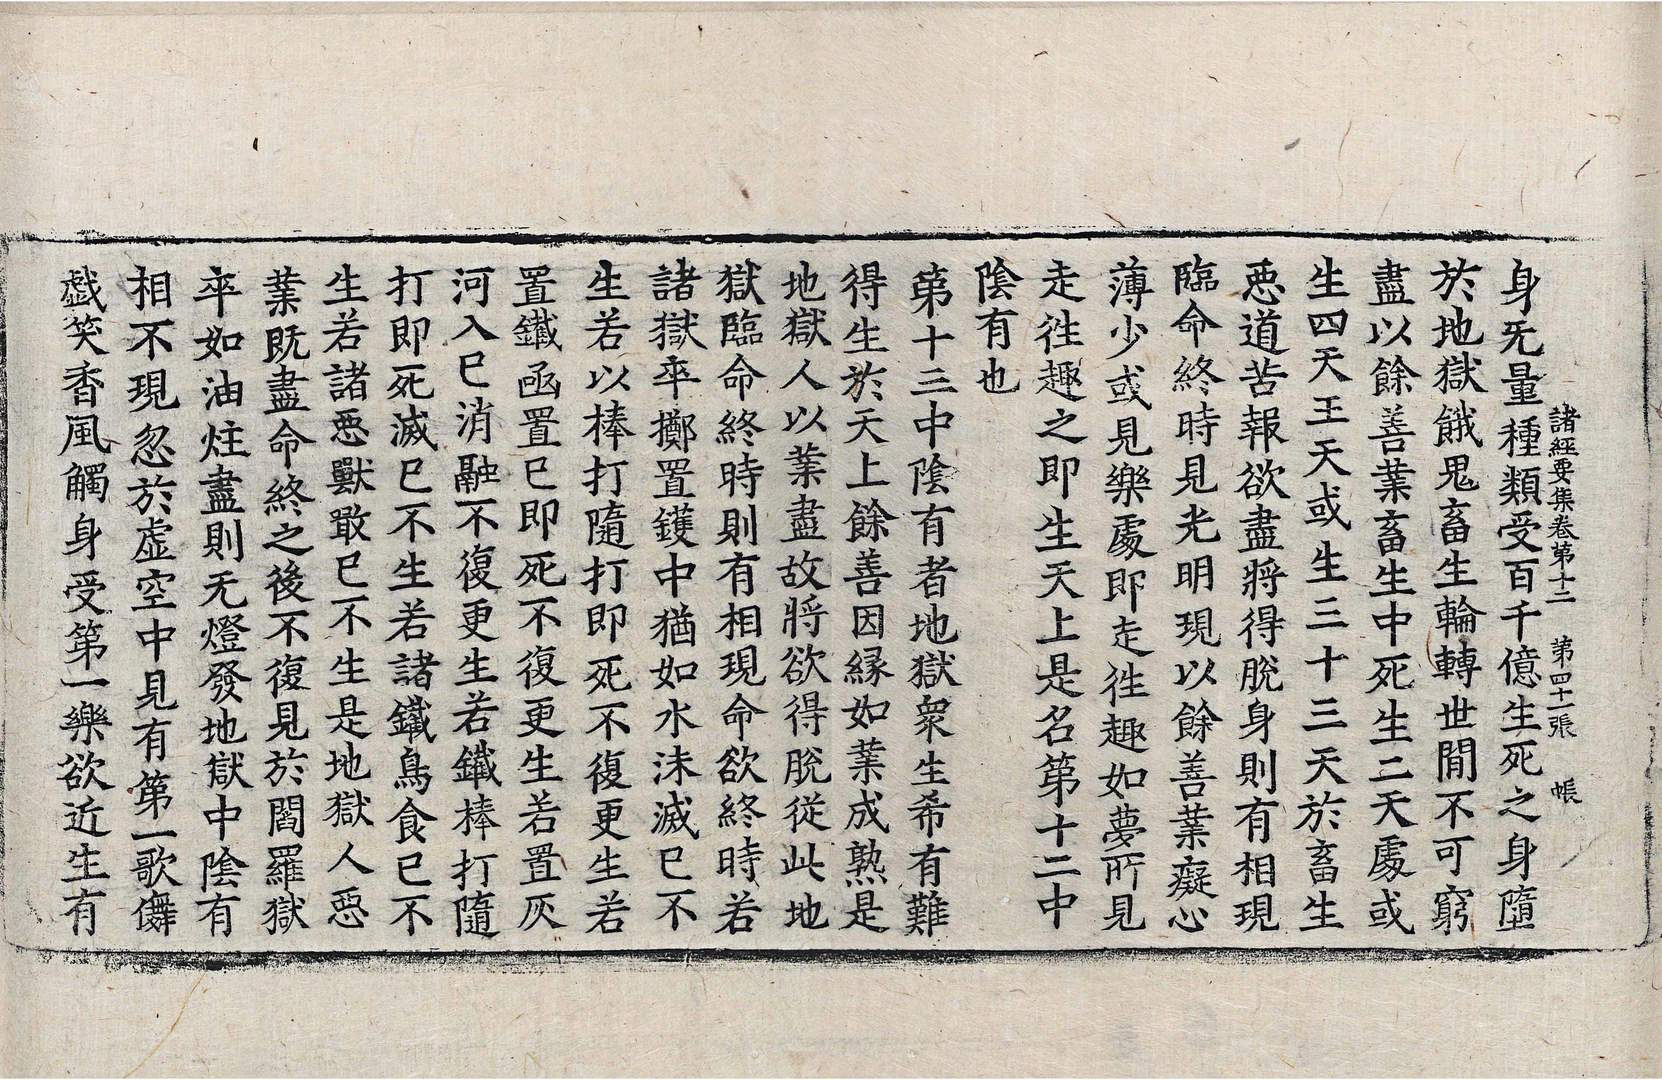 諸經要集卷第十二 第四十一張 帳
身无量種類受百千億生死之身墮
於地獄餓鬼畜生輪轉世間不可窮
盡以餘善業畜生中死生二天處或
生四天王天或生三十三天於畜生
惡道苦報欲盡將得脫身則有相現
臨命終時見光明現以餘善業癡心
薄少或見樂處即走往趣如夢所見
走往趣之即生天上是名第十二中
陰有也
第十三中陰有者地獄衆生希有難
得生於天上餘善因緣如業成熟是
地獄人以業盡故將欲得脫從此地
獄臨命終時則有相現命欲終時若
諸獄卒擲置鑊中猶如水沫滅已不
生若以棒打隨打即死不復更生若
置鐵函置已即死不復更生若置灰
河入已消融不復更生若鐵棒打隨
打即死滅已不生若諸鐵鳥食已不
生若諸惡獸噉已不生是地獄人惡
業既盡命終之後不復見於閻羅獄
卒如油炷盡則无燈發地獄中陰有
相不現忽於虛空中見有第一歌儛
戲笑香風觸身受第一樂欲近生有